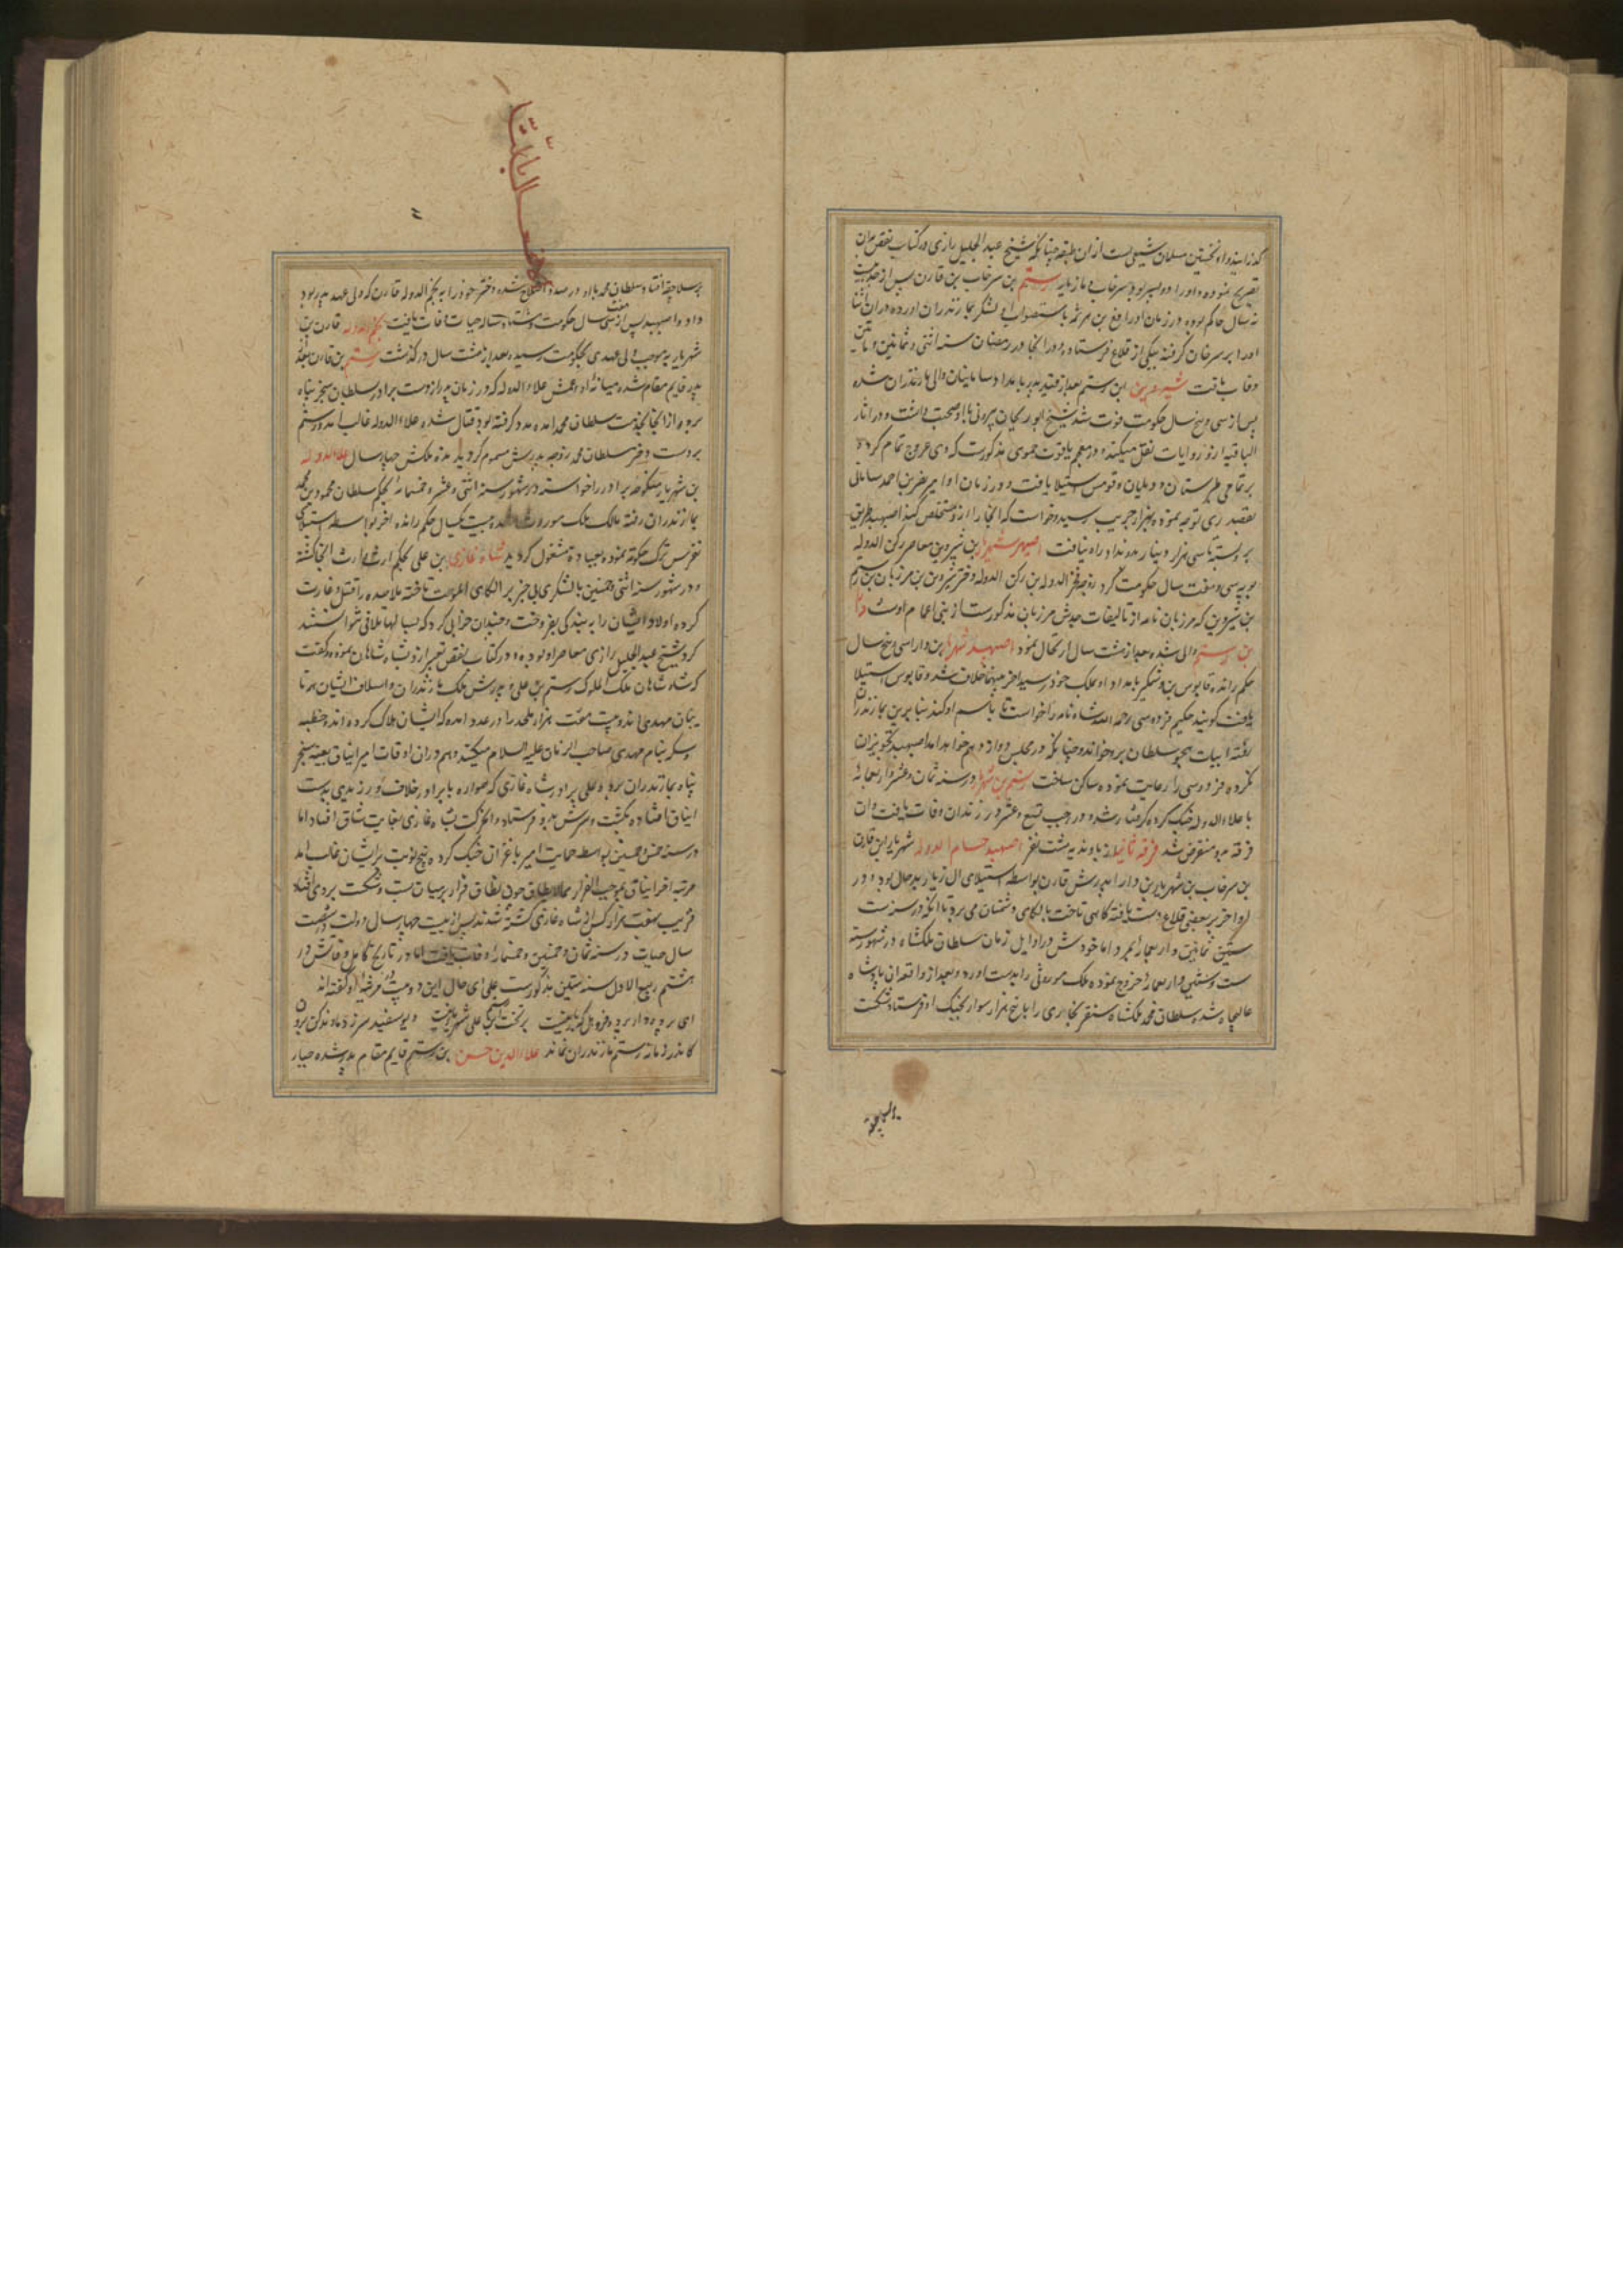 که زاییده و او نخستین مسلمان شیعی است از ان طبقه چنانکه شیخ عبد الجلیل رازی در کتاب نقض بدان
تصریح نموده و او را دو پسر بود سرخاب و مازیار رستم بن سرخاب بن قارن پس از جد
نه سال حاکم بوده در زمان او رافع بن هرثمه باستصواب لشکر بمازندران آورده در ان اثنا
او را بر سر خان گرفته بیکی از قلاع فرستاد و در انجا در رمضان سنه اثنی و ثمانین و مأتین
وفات یافت شروین ابن رستم بعد از قتل پدر بامداد سامانیان والی مازندران شده
پس از سی و پنج سال حکومت فوت شد شیخ ابو ریحان بیرونی با او صحبت داشت و در اثار
الباقیه ازو روایات نقل میکند و در معجم یاقوت حموی مذکورست که وی عروج تمام کرده
بر تمامی طبرستان و دیلمان و قومس استیلا یافت و در زمان او امیر نصر بن احمد سامانی
بقصد ری توجه نموده بهزار جریب رسید و خواست که انجا را ازو مستخلص کند اصپهبد طریق
بر و بسته تا سی هزار دینار بدو نداد راه نیافت اصپهبد شهریار بن شروین معاصر رکن الدوله
بویه سی و هفت سال حکومت کرد زوجه فخر الدوله بن رکن الدوله دختر شروین بن مرزبان بن رستم
بن شروین که مرزبان نامه از تألیفات جدش مرزبان مذکورست از بنی اعمام اوست دارا
بن رستم والی شده بعد از هشت سال ارتحال نمود اصپهبد شهریار بن دارا سی و پنج سال
حکم رانده قابوس بن وشمکیر بامداد او بملک خود رسید اخر میانهما خلاف شد و قابوس استیلا
یافت گویند حکیم فردوسی رحمه الله شاه نامه را خواست تا باسم او کند بنابرین بمازندران
رفته ابیات هجو سلطان برو خواند و چنانکه در مجلس دوازدهم خواهد امد اصپهبد تجویز ان
نکرده فردوسی را رعایت نموده ساکن ساخت رستم بن شهریار در سنه ثمان و عشر و اربعمائه
با علاء الدوله جنگ کرده گرفتار شد و در رجب تسع و عشر در زندان وفات یافت و ان
فرقه بدو منقرض شد فرقه ثانیه از باوندیه هشت نفر اصپهبد حسام الدوله شهریار بن قارن
بن سرخاب بن شهریار بن دارا پدرش قارن بواسطه استیلای ال زیار بد حال بود و در
اواخر بر بعضی قلاع دست یافته گاهی تاخت بالکای دشمنان می برد تا انکه در سنه ست
ستین ثمانین و اربعمائه بمرد و اما خودش در اوایل زمان سلطان ملکشاه در شهور سنه
ست و ستین و اربعمائه خروج نموده ملک موروثی را بدست اورد و بعد از واقعه ان پادشاه
عالیجاه شد و سلطان محمد ملکشاه سنقر بخاری را با پنج هزار سوار بجنگ او فرستاد و شکست
بر سلاجقه افتاد و سلطان محمد با او در صدد اصلاح شده دختر خود را به نجم الدوله قارن که ولی عهد پدر بود
داد و اصپهبد پس از سی هفت سال حکومت و هشتاد ساله حیات وفات یافت نجم الدوله قارن بن
شهریار به موجب ولی عهدی بحکومت رسیده بعد از هشت سال درگذشت رستم بن قارن بعد
پدر قایم مقام شده میانه او و عمش علاء الدوله که در زمان برادر دوست برادر سلطان سنجر پناه
برده از انجا بخدمت سلطان محمد امده مدد گرفته بود قتال شده علاء الدوله غالب امد و رستم
بر دست دختر سلطان محمد زوجه پدرش مسموم گردید مده ملکش چهار سال علاء الدوله
بن شهریار منکوحه برادر را خواسته در شهور سنه اثنی و عشر و خمسمائه بحکم سلطان محمود بن محمد
بمازندران رفته مالک ملک موروث شد و بیست یکسال حکم رانده اخر بواسطه استیلای
نقرس ترک حکومة نموده بعبادة مشغول گردید شاه غازی بن علی بحکم ارث وارث انجا گشته
و در شهور سنه اثنی و خمسین بالشکری بی خبر بر الکای الموت تاخته ملاحده را قتل و غارت
کرده اولاد ایشان را به بندگی بفروخت و چندان خرابی کرد که بسالها تلافی نتوانستند
کرد شیخ عبد الجلیل رازی معاصر او بوده و در کتاب نقض تعبیر ازو بشاه شاهان نموده و گفت
که شاه شاهان ملک الملوک رستم بن علی و پدرش ملک مازندران و اسلاف ایشان همه تا
بیان مهدی اند و بیست هفت هزار ملحد را در عدد امده که ایشان هلاک کرده اند و خطبه
و سکه بنام مهدی صاحب الزمان علیه السلام میکنند و هم در ان اوقات امیر ایناق بعیه سنجر
پناه بمازندران برد و علی برادر شاه غازی که همواره با برادر خلاف ورزیدی بدست
ایناق افتاده بکشت و سرش بدو فرستاد و این حرکت بشاه غازی بغایت شاق افتاد اما
در سنه خمس و خمسین بواسطه حمایت امیر با غزان جنگ کرده پنج نوبت بر ایشان غالب امد
مرتبه اخر ایناق بموجب الفرار مما لایطاق چون نطاق فرار بر میان بست و شکست بر وی افتاد
قریب هفت هزار کس از شاه غازی کشته شدند پس از بیست چهار سال دولت و شصت
سال حیات در سنه ثمان و خمسین و خمسمائه وفات یافت اما در تاریخ کامل وفاتش در
هشتم ربیع الاول سنه ستین مذکورست علی ای حال این دو بیت در مرثیه او گفته اند
ای پرده دار پرده فرو هل که بار نیست بر تخت رستم بن علی شهریار نیست دیو سفید سر ز دماوند کن برون
کاندر زمانه رستم مازندران نماند علاء الدین حسن بن رستم قایم مقام پدر شده جبار